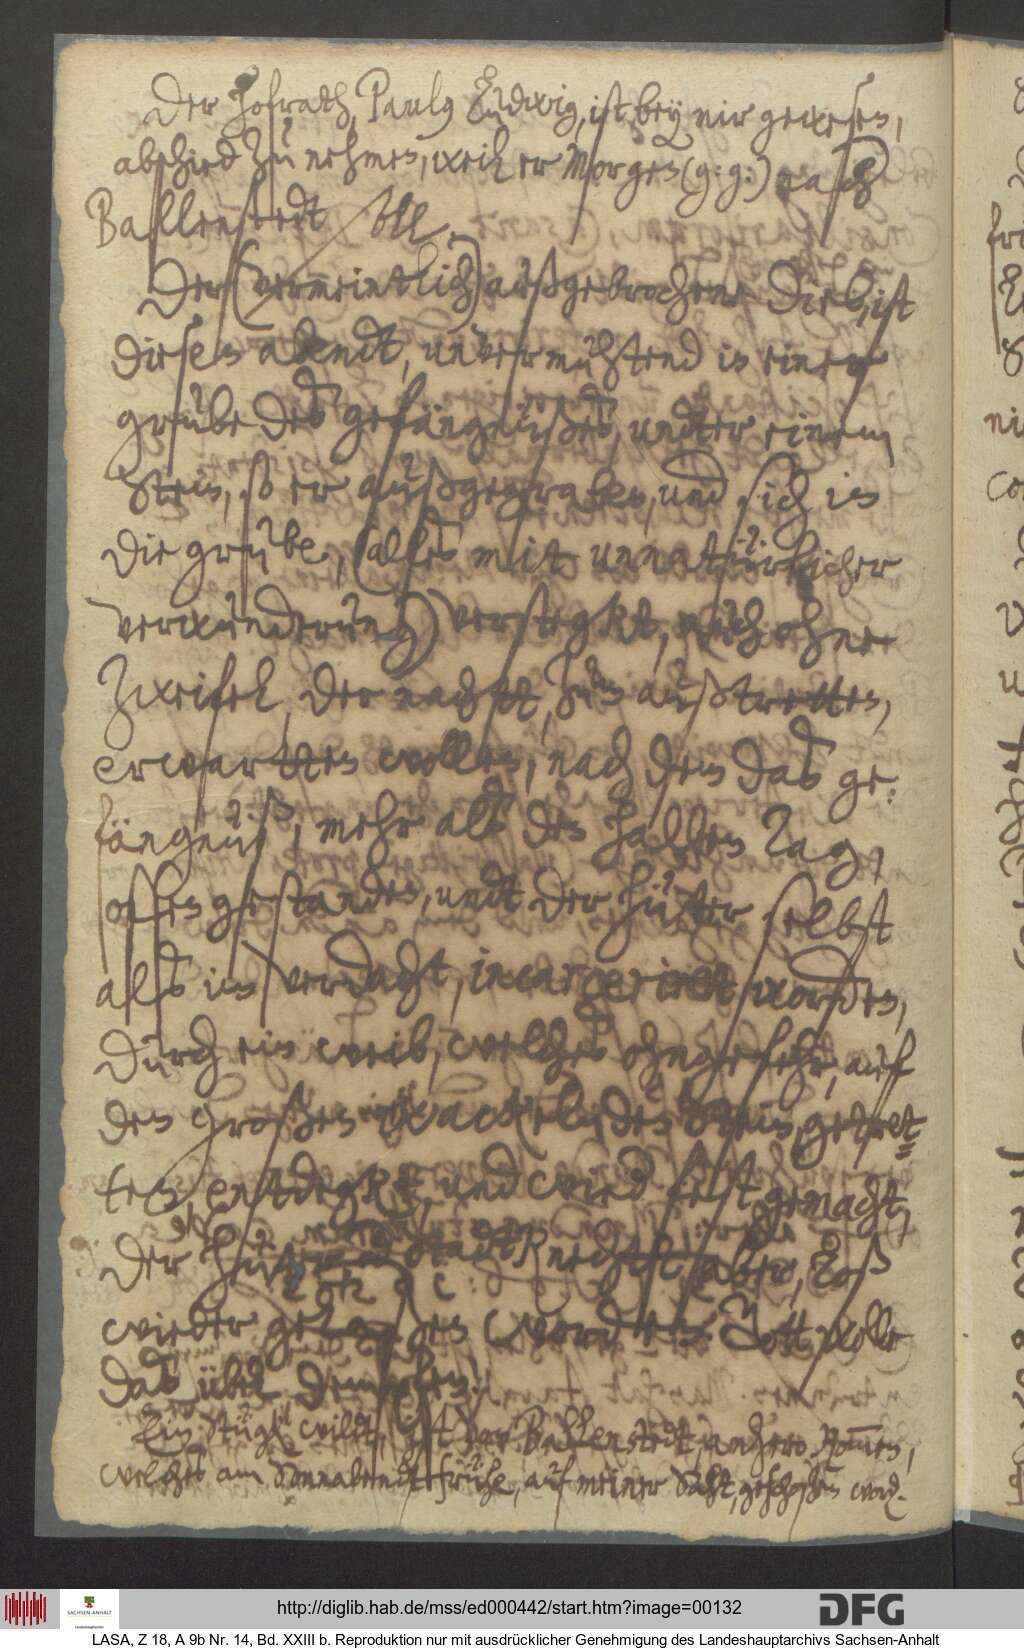 Der Hofrath, Paulg Ludwig, ist bey mir gewesen,
abschied zu nehmen, weil er Morgen (g: g:) nach
Ballenstedt will.
Der (vermeintlich) außgebrochene Dieb, ist
dieses abendt, unvermuhtend in einer
grube des gefängnüßes, undter einem
Stein, so er außgegraben, und sich in
die grube, (alles mit unnatürlicher
verwunderung) verstegkt, auch ohne
Zweifel, der nacht, zum außtretten,
erwartten wollen, nach dem das ge-
fängnüß, mehr als den halben Tag,
offen gestanden, undt der hüter selbst
als in verdacht, incarcerirt worden,
durch ein weib, welches ohngefehr, auf
den großen wackelnden Stein getret-
ten entdegkt und wird fest gemacht,
der hüter Stadtknecht aber, loß
wieder gelaßen worden. Gott wolle
das übel dempfen!
Ein Stügk wildt, ist von Ballenstedt, anhero kommen,
welches am Sonnabendt frühe, auf meiner Saht, geschoßen word.
http://diglib.hab.de/mss/ed000442/start.htm?image=00132
SACHSEN-ANHALT
DFG
LASA, Z 18, A 9b Nr. 14, Bd. XXIII b. Reproduktion nur mit ausdrücklicher Genehmigung des Landeshauptarchivs Sachsen-Anhalt